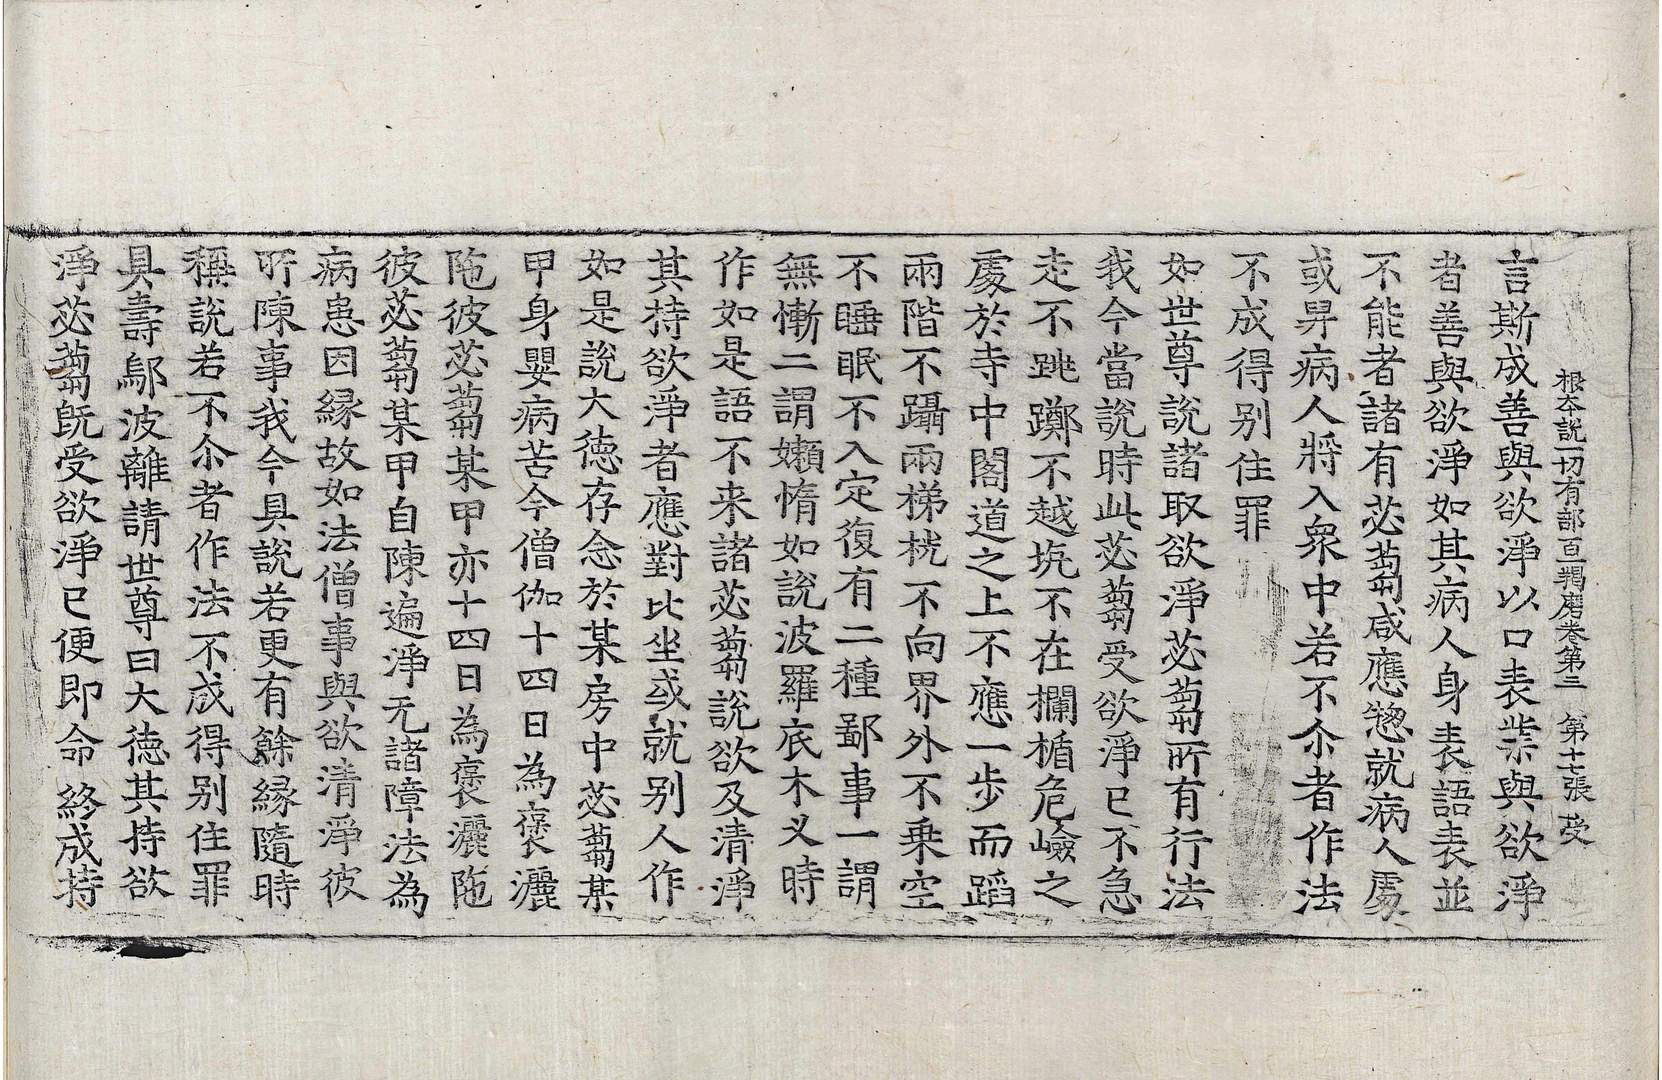 根本說一切有部百一羯磨卷第三 第十七張 受
言斯成善與欲淨以口表業與欲淨
者善與欲淨如其病人身表語表並
不能者諸有苾蒭咸應惣就病人處
或舁病人將入衆中若不尒者作法
不成得別住罪
如世尊說諸取欲淨苾蒭所有行法
我今當說時此苾蒭受欲淨已不急
走不跳躑不越坑不在欄楯危嶮之
處於寺中閣道之上不應一步而蹈
兩階不躡兩梯桄不向界外不乗空
不睡眠不入定復有二種鄙事一謂
無慚二謂嬾惰如說波羅底木叉時
作如是語不来諸苾蒭說欲及清淨
其持欲淨者應對比坐或就別人作
如是說大德存念於某房中苾蒭某
甲身嬰病苦今僧伽十四日為褒灑
陁彼苾蒭某甲亦十四日為褒灑陁
彼苾蒭某甲自陳遍淨无諸障法為
病患因緣故如法僧事與欲清淨彼
所陳事我今具說若更有餘緣隨時
稱說若不尒者作法不成得別住罪
具壽鄔波離請世尊曰大德其持欲
淨苾蒭旣受欲淨已便即命終成持